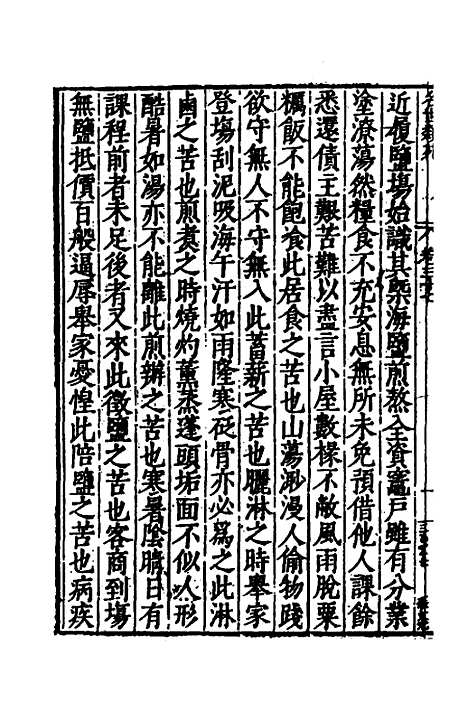 近履鹽塲始識其槩海鹽煎熬全資竈戸雖有分業
塗潦蕩然糧食不充安息無所未免預借他人課餘
悉還債主艱苦難以盡言小屋數椽不敵風雨脫粟
糲飯不能飽飡此居食之苦也山蕩渺漫人偷物踐
欲守無人不守無入此蓄薪之苦也曬淋之時舉家
登塲刮泥吸海午汗如雨隆寒砭骨亦必爲之此淋
鹵之苦也煎煑之時燒灼薰蒸蓬頭垢面不似人形
酷暑如湯亦不能離此煎辦之苦也寒暑陰晴日有
課程前者未足後者又來此徵鹽之苦也客商到塲
無鹽抵價百般逼辱舉家憂惶此陪鹽之苦也病疾